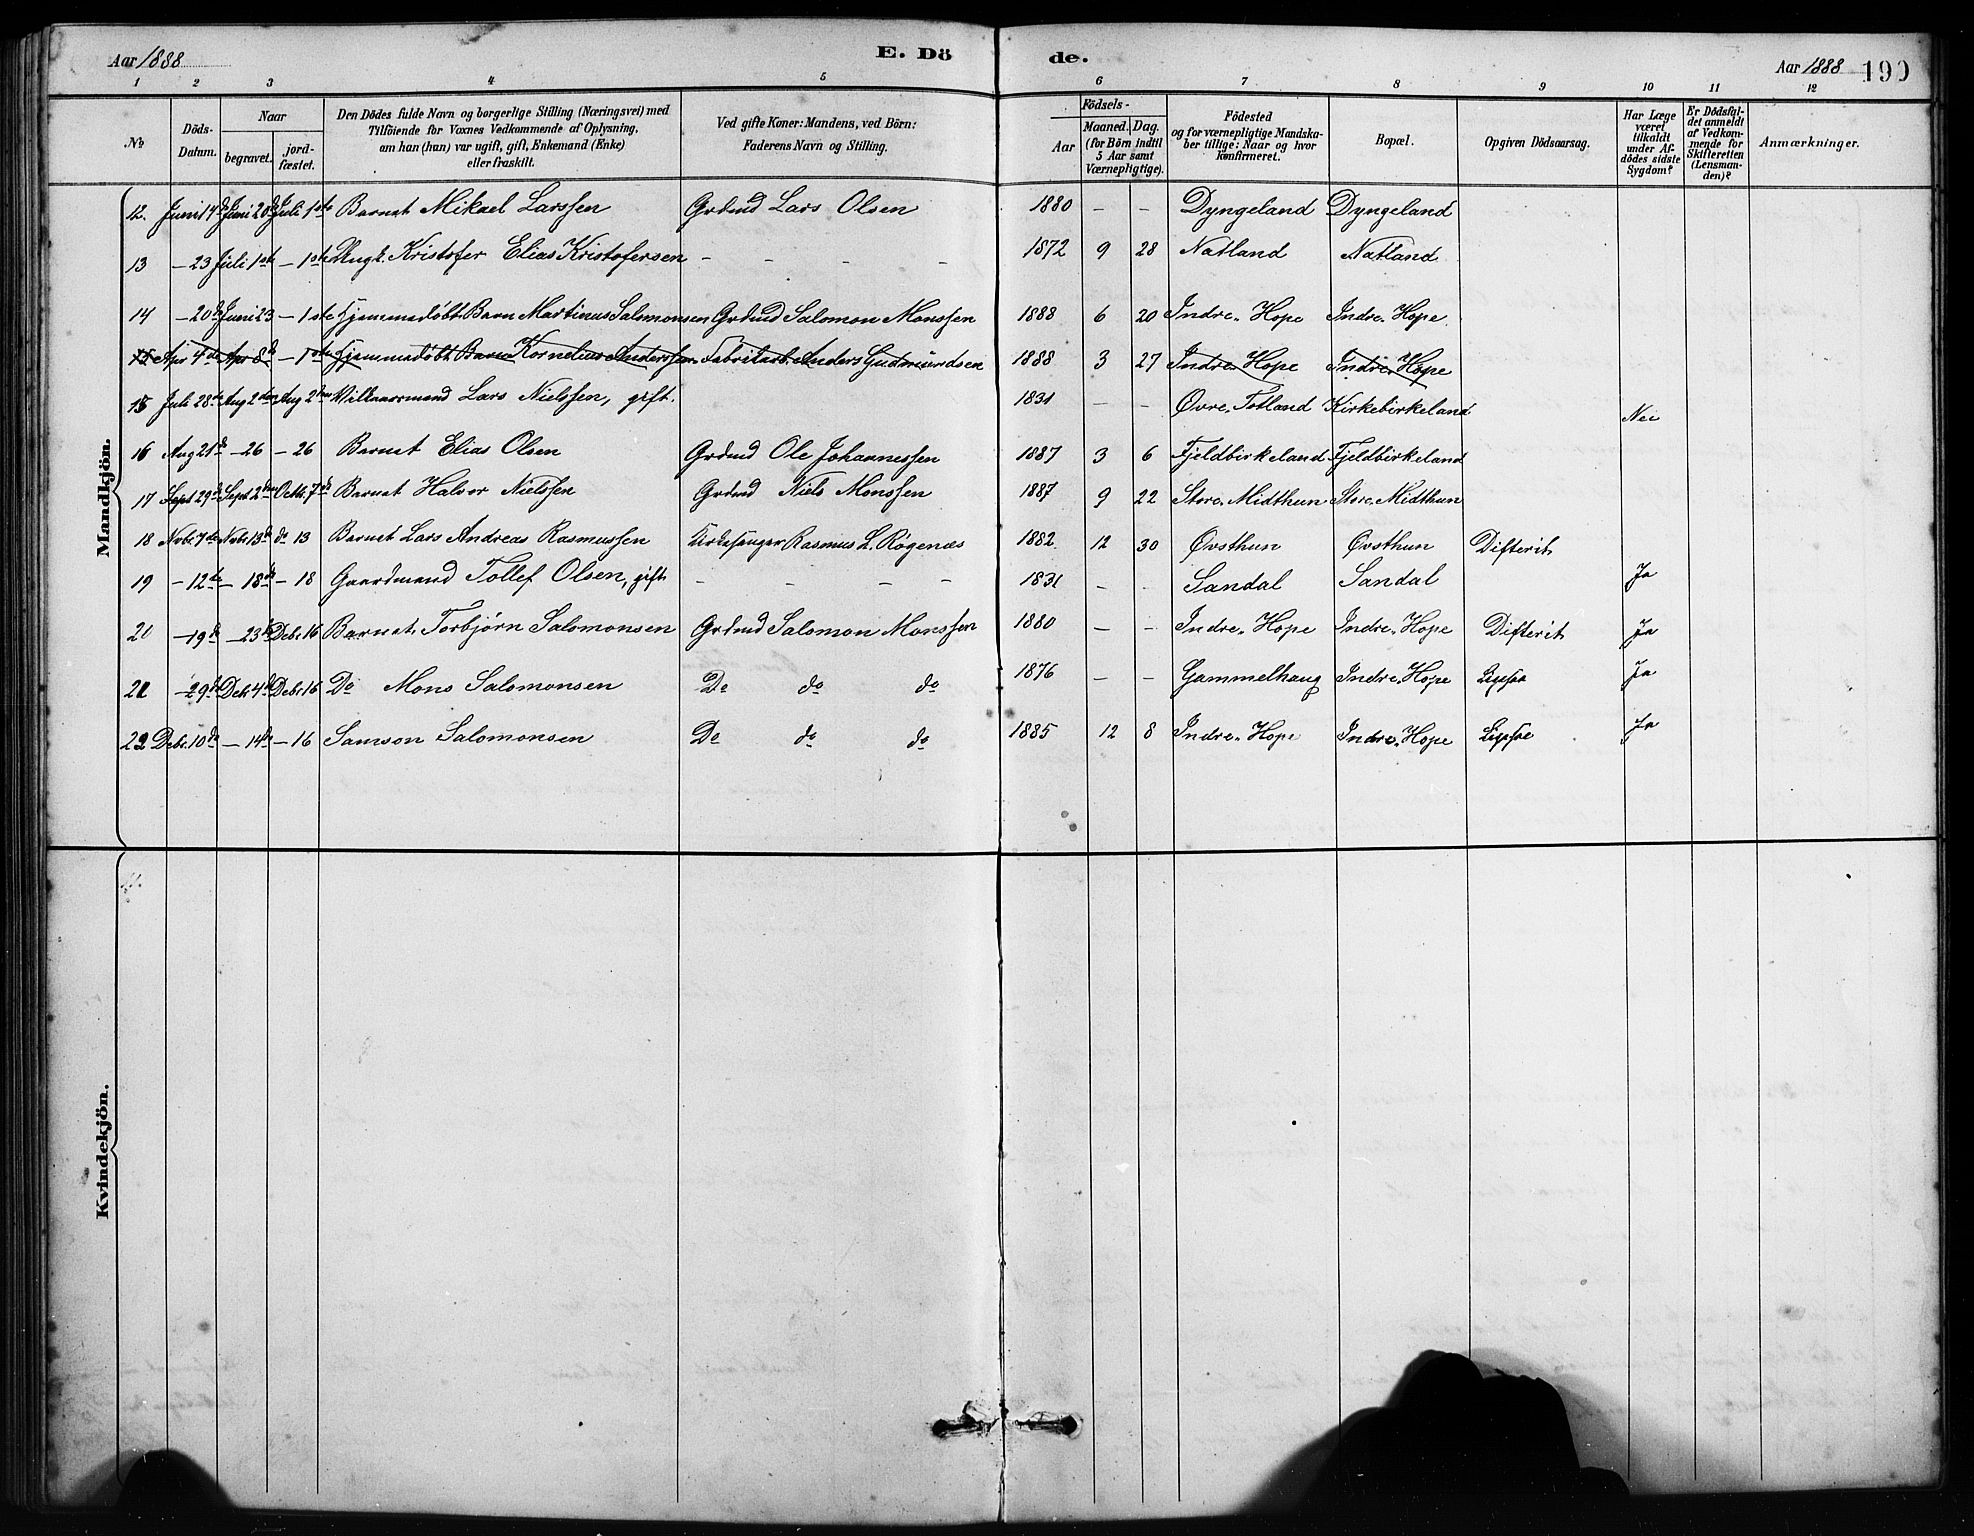 Aar 1888 E. Dö de. Aar 1888 190
1 2 3 4 5 6 7 8 9 10 11 12
№ Döds-Datum. Naar begravet. jordfæstet. Den Dödes fulde Navn og borgerlige Stilling (Næringsvei) med Tilföiende for Voxnes Vedkommende af Oplysning, om han (hun) var ugift, gift, Enkemand (Enke) eller fraskilt. Ved gifte Koner: Mandens, ved Börn: Faderens Navn og Stilling. Födsels- Aar Maaned. Dag. (for Börn indtil 5 Aar samt Værnepligtige). Födested og for værnepligtige Mandskaber tillige: Naar og hvor konfirmeret. Bopæl. Opgiven Dödsaarsag. Har Læge været tilkaldt under Afdödes sidste Sygdom? Er Dödsfaldet anmeldt af Vedkommende for Skifteretten (Lensmanden)? Anmærkninger.
Mandkjön.
12. Juni 14de Juni 20de Juli 1ste Barnet Mikael Larssen Grdmd Lars Olsen 1880 – – Dyngeland Dyngeland
13 – 23 Juli 1ste – 1ste Ungk. Kristofer Elias Kristofersen – – – – 1872 9 28 Natland Natland
14 – 20de Juni 23 – 1ste Hjemmedøbt Barn Martinus Salomonsen Grdmd Salomon Monssen 1888 6 20 Indre Hope Indre Hope
15 Apr 4de Apr 8de – 1ste Hjemmedøbt Barn Kornelius Anderssen Fabrikarb. Anders Gudmundsen 1888 3 27 Indre Hope Indre Hope
15 Juli 28de Aug 2den Aug 2den Vilkaarsmand Lars Nielssen, gift. 1831 – – Øvre Totland Kirkebirkeland Nei
16 Aug 21de – 26 – 26 Barnet Elias Olsen Grdmd Ole Johannessen 1887 3 6 Fjeldbirkeland Fjeldbirkeland
17 Sept 29de Sept 2den Octb. 7de Barnet Halvor Nielssen Grdmd Niels Monssen 1887 9 22 Store Midthun Store Midthun
18 Nvbr. 7de Nvbr. 13de do 13 Barnet Lars Andreas Rasmussen Kirkesanger Rasmus L. Røgenæs 1882 12 30 Øvsthun Øvsthun Difterit
19 – 12de – 18de – 18 Gaardmand Tollef Olsen, gift – – – – 1831 – – Sandal Sandal Ja
20 – 19de – 23de Debr. 16 Barnet Torbjørn Salomonsen Grdmd Salomon Monssen 1880 – – Indre Hope Indre Hope Difterit Ja
21 – 29de Debr. 4de Debr. 16 Do Mons Salomonsen Do do do 1876 – – Gammelhaug Indre Hope Ligesaa Ja
22 Debr. 10de – 14de – 16 Samson Salomonsen Do do do 1885 12 8 Indre Hope Indre Hope Ligesaa Ja
Kvindekjön.